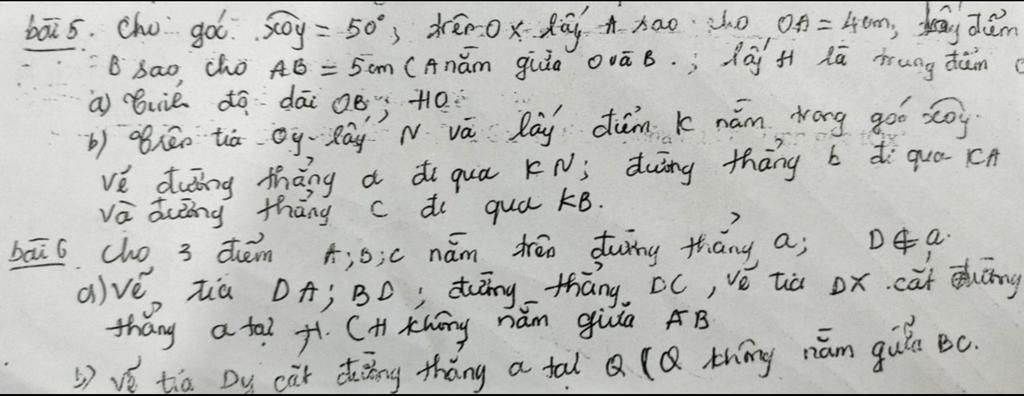 bài 5. Cho góc xOy = 50°; trên Ox lấy A sao cho OA = 4cm, lấy điểm
B sao cho AB = 5cm (A nằm giữa O và B.; lấy H là trung điểm
a) Tính độ dài OB; HO
b) Trên tia Oy lấy N và lấy điểm K nằm trong góc xOy.
vẽ đường thẳng a đi qua KN; đường thẳng b đi qua KA
và đường thẳng c đi qua KB.
bài 6 Cho 3 điểm A; B; C nằm trên đường thẳng a; D ∉ a.
a) vẽ tia DA; BD; đường thẳng DC, vẽ tia DX cắt đường
thẳng a tại H. (H không nằm giữa AB
b) vẽ tia Dy cắt đường thẳng a tại Q (Q không nằm giữa BC.